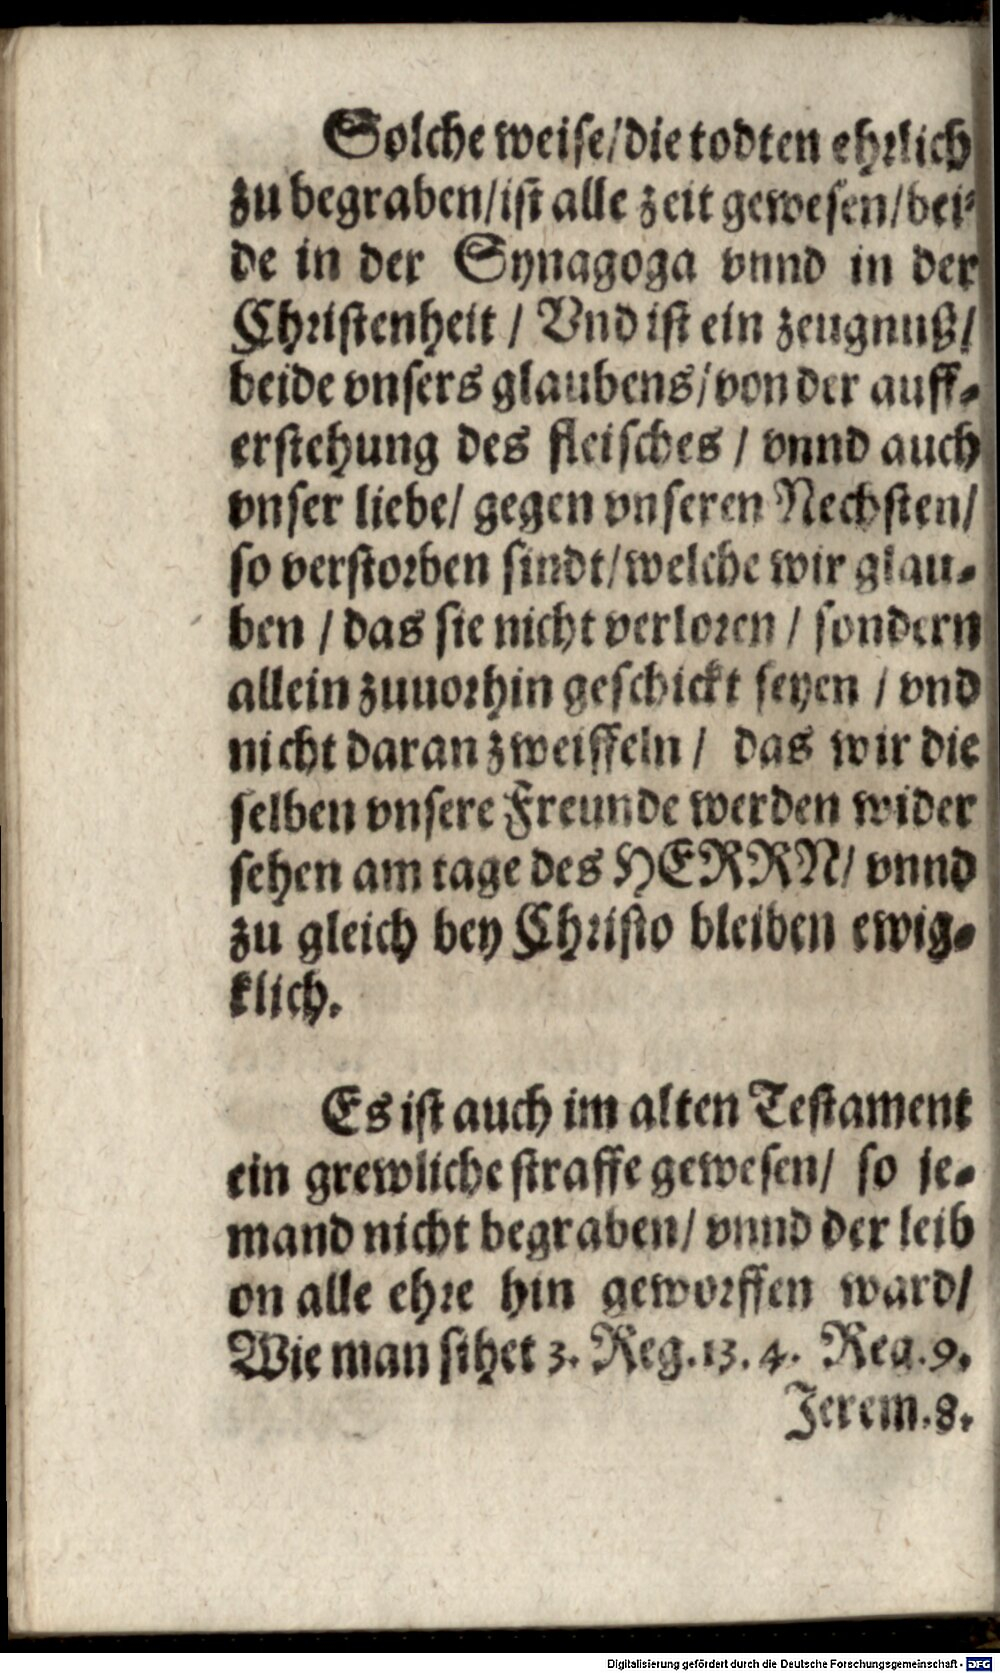 Solche weise/die todten ehrlich
zu begraben/ist alle zeit gewesen/bei-
de in der Synagoga vnnd in der
Christenheit / Vnd ist ein zeugnuß/
beide vnsers glaubens/von der auff-
erstehung des fleisches / vnnd auch
vnser liebe/ gegen vnseren Nechsten/
so verstorben sindt/welche wir glau-
ben / das sie nicht verloren / sondern
allein zuuorhin geschickt seyen / vnd
nicht daran zweiffeln / das wir die
selben vnsere Freunde werden wider
sehen am tage des HERRN/ vnnd
zu gleich bey Christo bleiben ewig-
klich.
Es ist auch im alten Testament
ein grewliche straffe gewesen/ so je-
mand nicht begraben/ vnnd der leib
on alle ehre hin geworffen ward/
Wie man sihet 3. Reg. 13. 4. Reg. 9.
Jerem. 8.
Digitalisierung gefördert durch die Deutsche Forschungsgemeinschaft - DFG